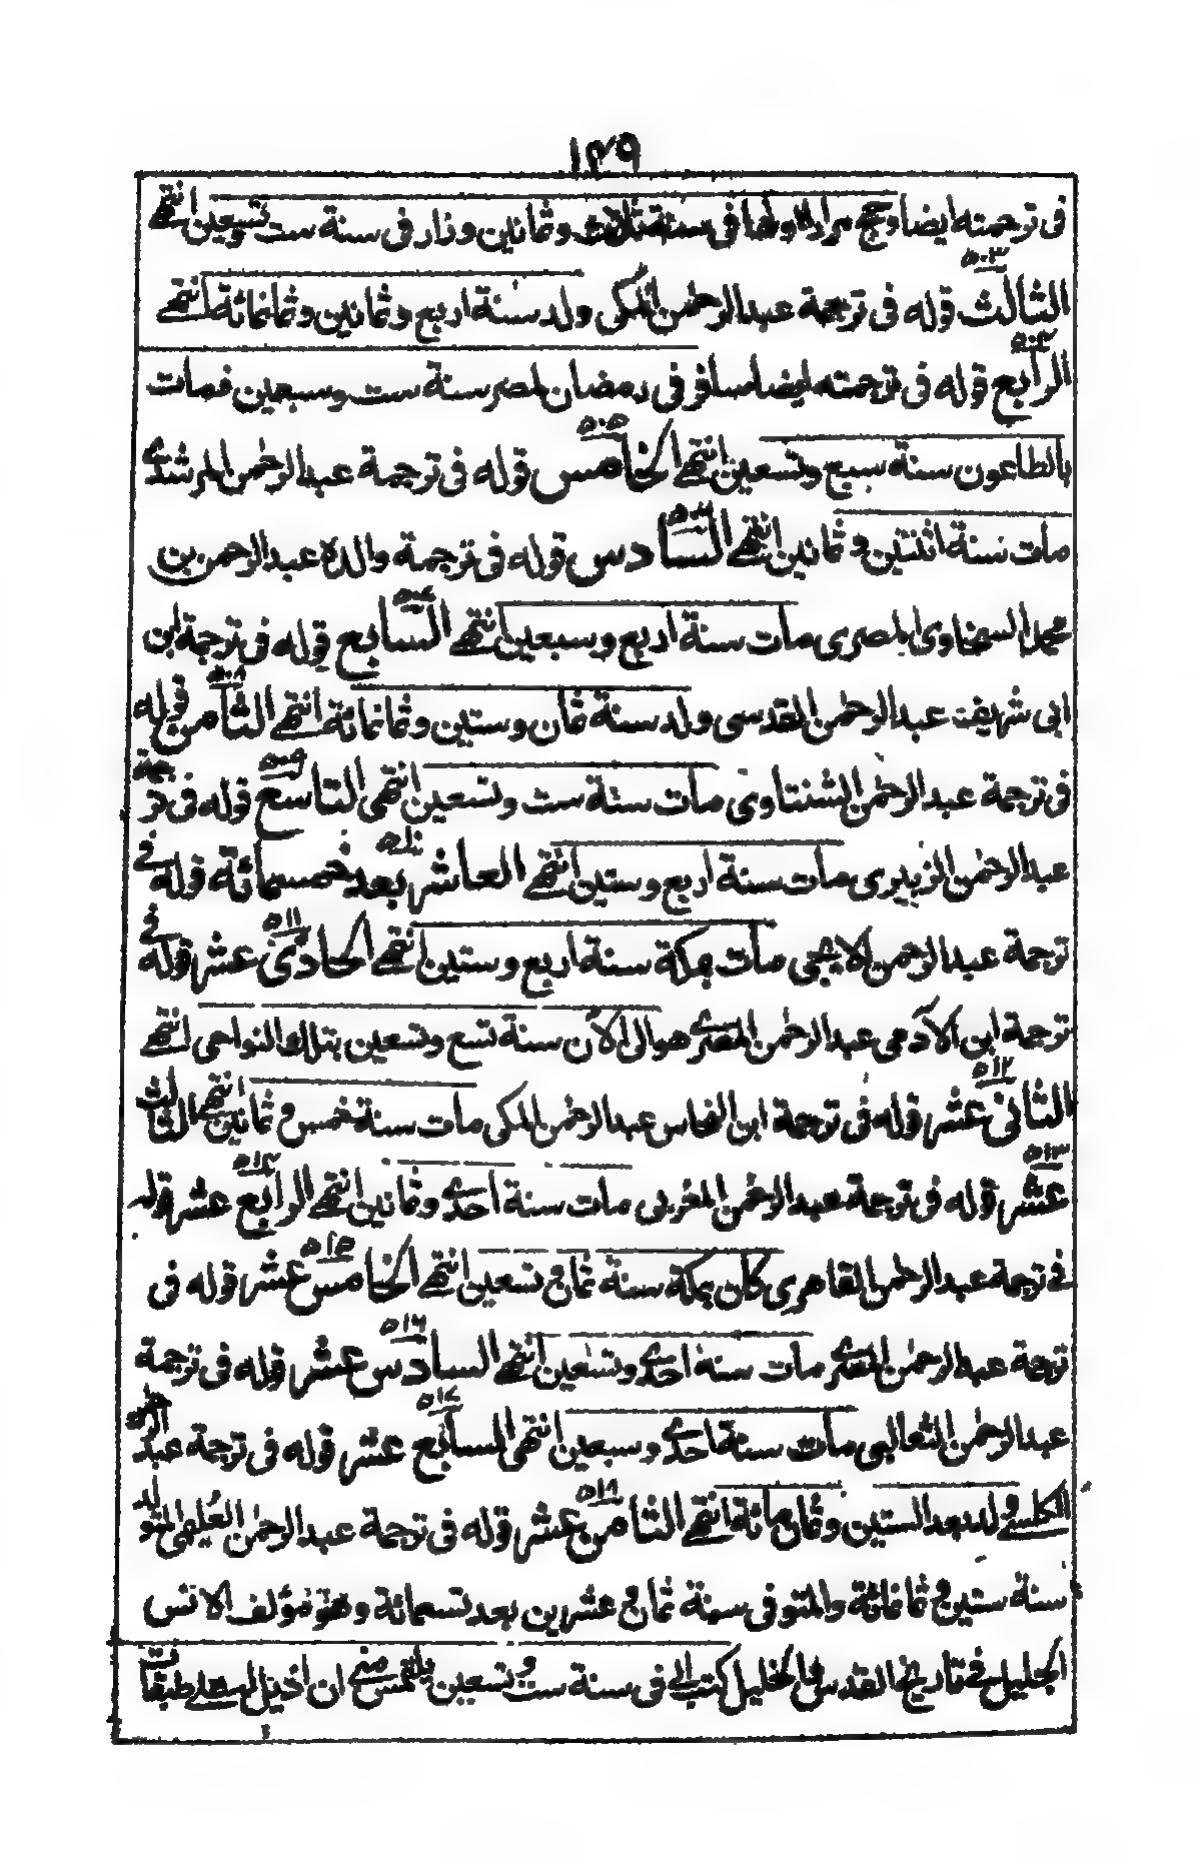 ١٣٩
فى ترجمته ايضا وحج مرارا اولها فى سنة ثلاث وثمانين وزار فى سنة ست وتسعين انتهے
٥٠٣
الثالث قوله فى ترجمة عبد الرحمٰن المكى ولد سنة اربع وثمانين وثمانمائة انتهے
٥٠٤
الرابع قوله فى ترجمته ايضا سافر فى رمضان لمصر سنة ست وسبعين فمات
٥٠٥
بالطاعون سنة سبع وتسعين انتهے الخامس قوله فى ترجمة عبد الرحمٰن المرشدے
٥٠٦
مات سنة اثنتين وثمانين انتهے السادس قوله فى ترجمة والده عبد الرحمن بن
٥٠٧
محمد السخاوى المصرى مات سنة اربع وسبعين انتهے السابع قوله فى ترجمة ابن
٥٠٨
ابى شريف عبد الرحمٰن المقدسى ولد سنة ثمان وستين وثمانمائة انتهے الثامن قوله
٥٠٩
فى ترجمة عبد الرحمٰن الشنتاوى مات سنة ست وتسعين انتهى التاسع قوله فى ترجمة
٥١٠
عبد الرحمٰن الزبيرى مات سنة اربع وستين انتهے العاشر بعد خمسمائة قوله فے
٥١١
ترجمة عبد الرحمن الايجى مات بمكة سنة اربع وستين انتهے الحادى عشر قوله فے
ترجمة ابن الآدمى عبد الرحمٰن المصرے هو الى الآن سنة تسع وتسعين بتلك النواحى انتهے
٥١٢
الثانى عشر قوله فى ترجمة ابن النحاس عبد الرحمٰن المكى مات سنة خمس وثمانين انتهے الثالث
٥١٣ ٥١٤
عشر قوله فى ترجمة عبد الرحمٰن المغربى مات سنة احدے وثمانين انتهے الرابع عشر قوله
٥١٥
فے ترجمة عبد الرحمٰن القاهرى كان بمكة سنة ثمان وتسعين انتهے الخامس عشر قوله فى
٥١٦
ترجمة عبد الرحمٰن المصرے مات سنة احدے وتسعين انتهے السادس عشر قوله فى ترجمة
٥١٧
عبد الرحمٰن الثعالبى مات سنة احدے وسبعين انتهى السابع عشر قوله فى ترجمة عبد الرحمٰن
٥١٨
ولد بعد الستين وثمان مائة انتهے الثامن عشر قوله فى ترجمة عبد الرحمٰن العُليمى المتولد
سنة ستين وثمانمائة والمتوفى سنة ثمان وعشرين بعد تسعمائة وهو مؤلف الانس
الجليل فے تاريخ القدس والخليل كتب الے فى سنة ست وتسعين يلتمس منے ان اذيل له طبقات